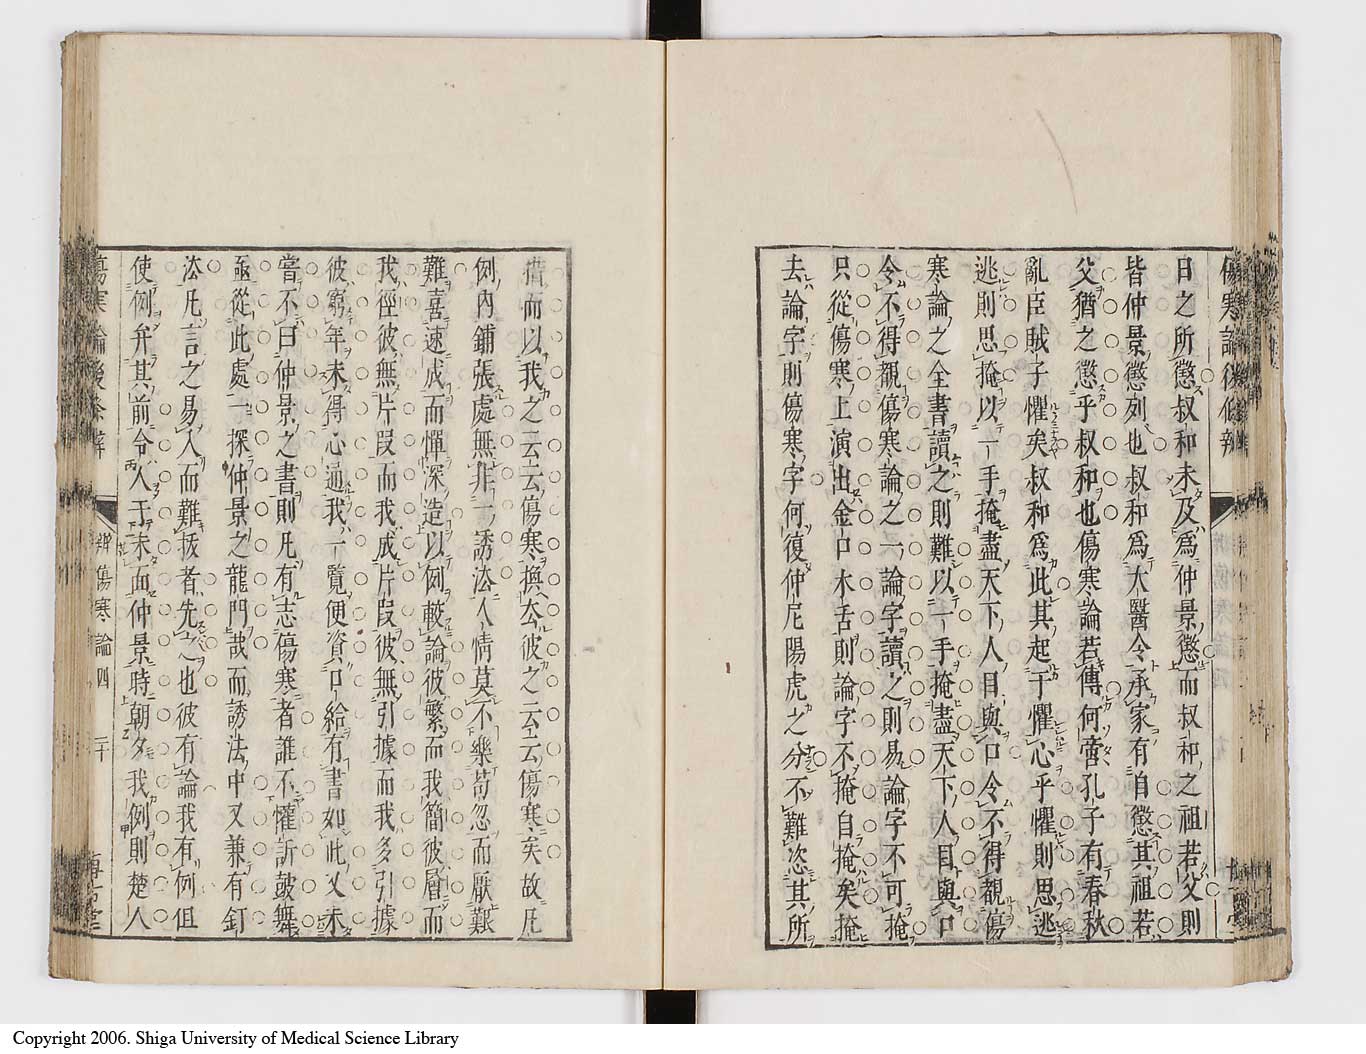 日之所懲叔和未及爲仲景懲而叔和之祖若父則
皆仲景懲列也叔和爲太醫令承家有自懲其祖若
父猶之懲乎叔和也傷寒論若傳何啻孔子有春秋
亂臣賊子懼矣叔和爲此其起于懼心乎懼則思逃
逃則思掩以一手掩盡天下人目與口令不得覩傷
寒論之全書讀之則難以一手掩盡天下人目與口
令不得覩傷寒論之一論字讀之則易論字不可掩
只從傷寒上演出金口木舌則論字不掩自掩矣掩
去論字則傷寒字何復仲尼陽虎之分不難恣其所
措而以我之云云傷寒換去彼之云云傷寒矣故凡
例內鋪張處無非一誘法人情莫不樂苟忽而厭艱
難喜速成而憚深造以例較論彼繁而我簡彼層而
我徑彼無片段而我成片段彼無引據而我多引據
彼窮年未得心通我一覽便資口給有書如此乂未
嘗不曰仲景之書則凡有志傷寒者誰不懽訢鼓舞
亟從此處一探仲景之龍門哉而誘法中又兼有釘
法凡言之易入而難拔者先之也彼有論我有例但
使例弁其前令人于未面仲景時朝夕我例則楚人
傷寒論後條辨
辨傷寒論四
二十